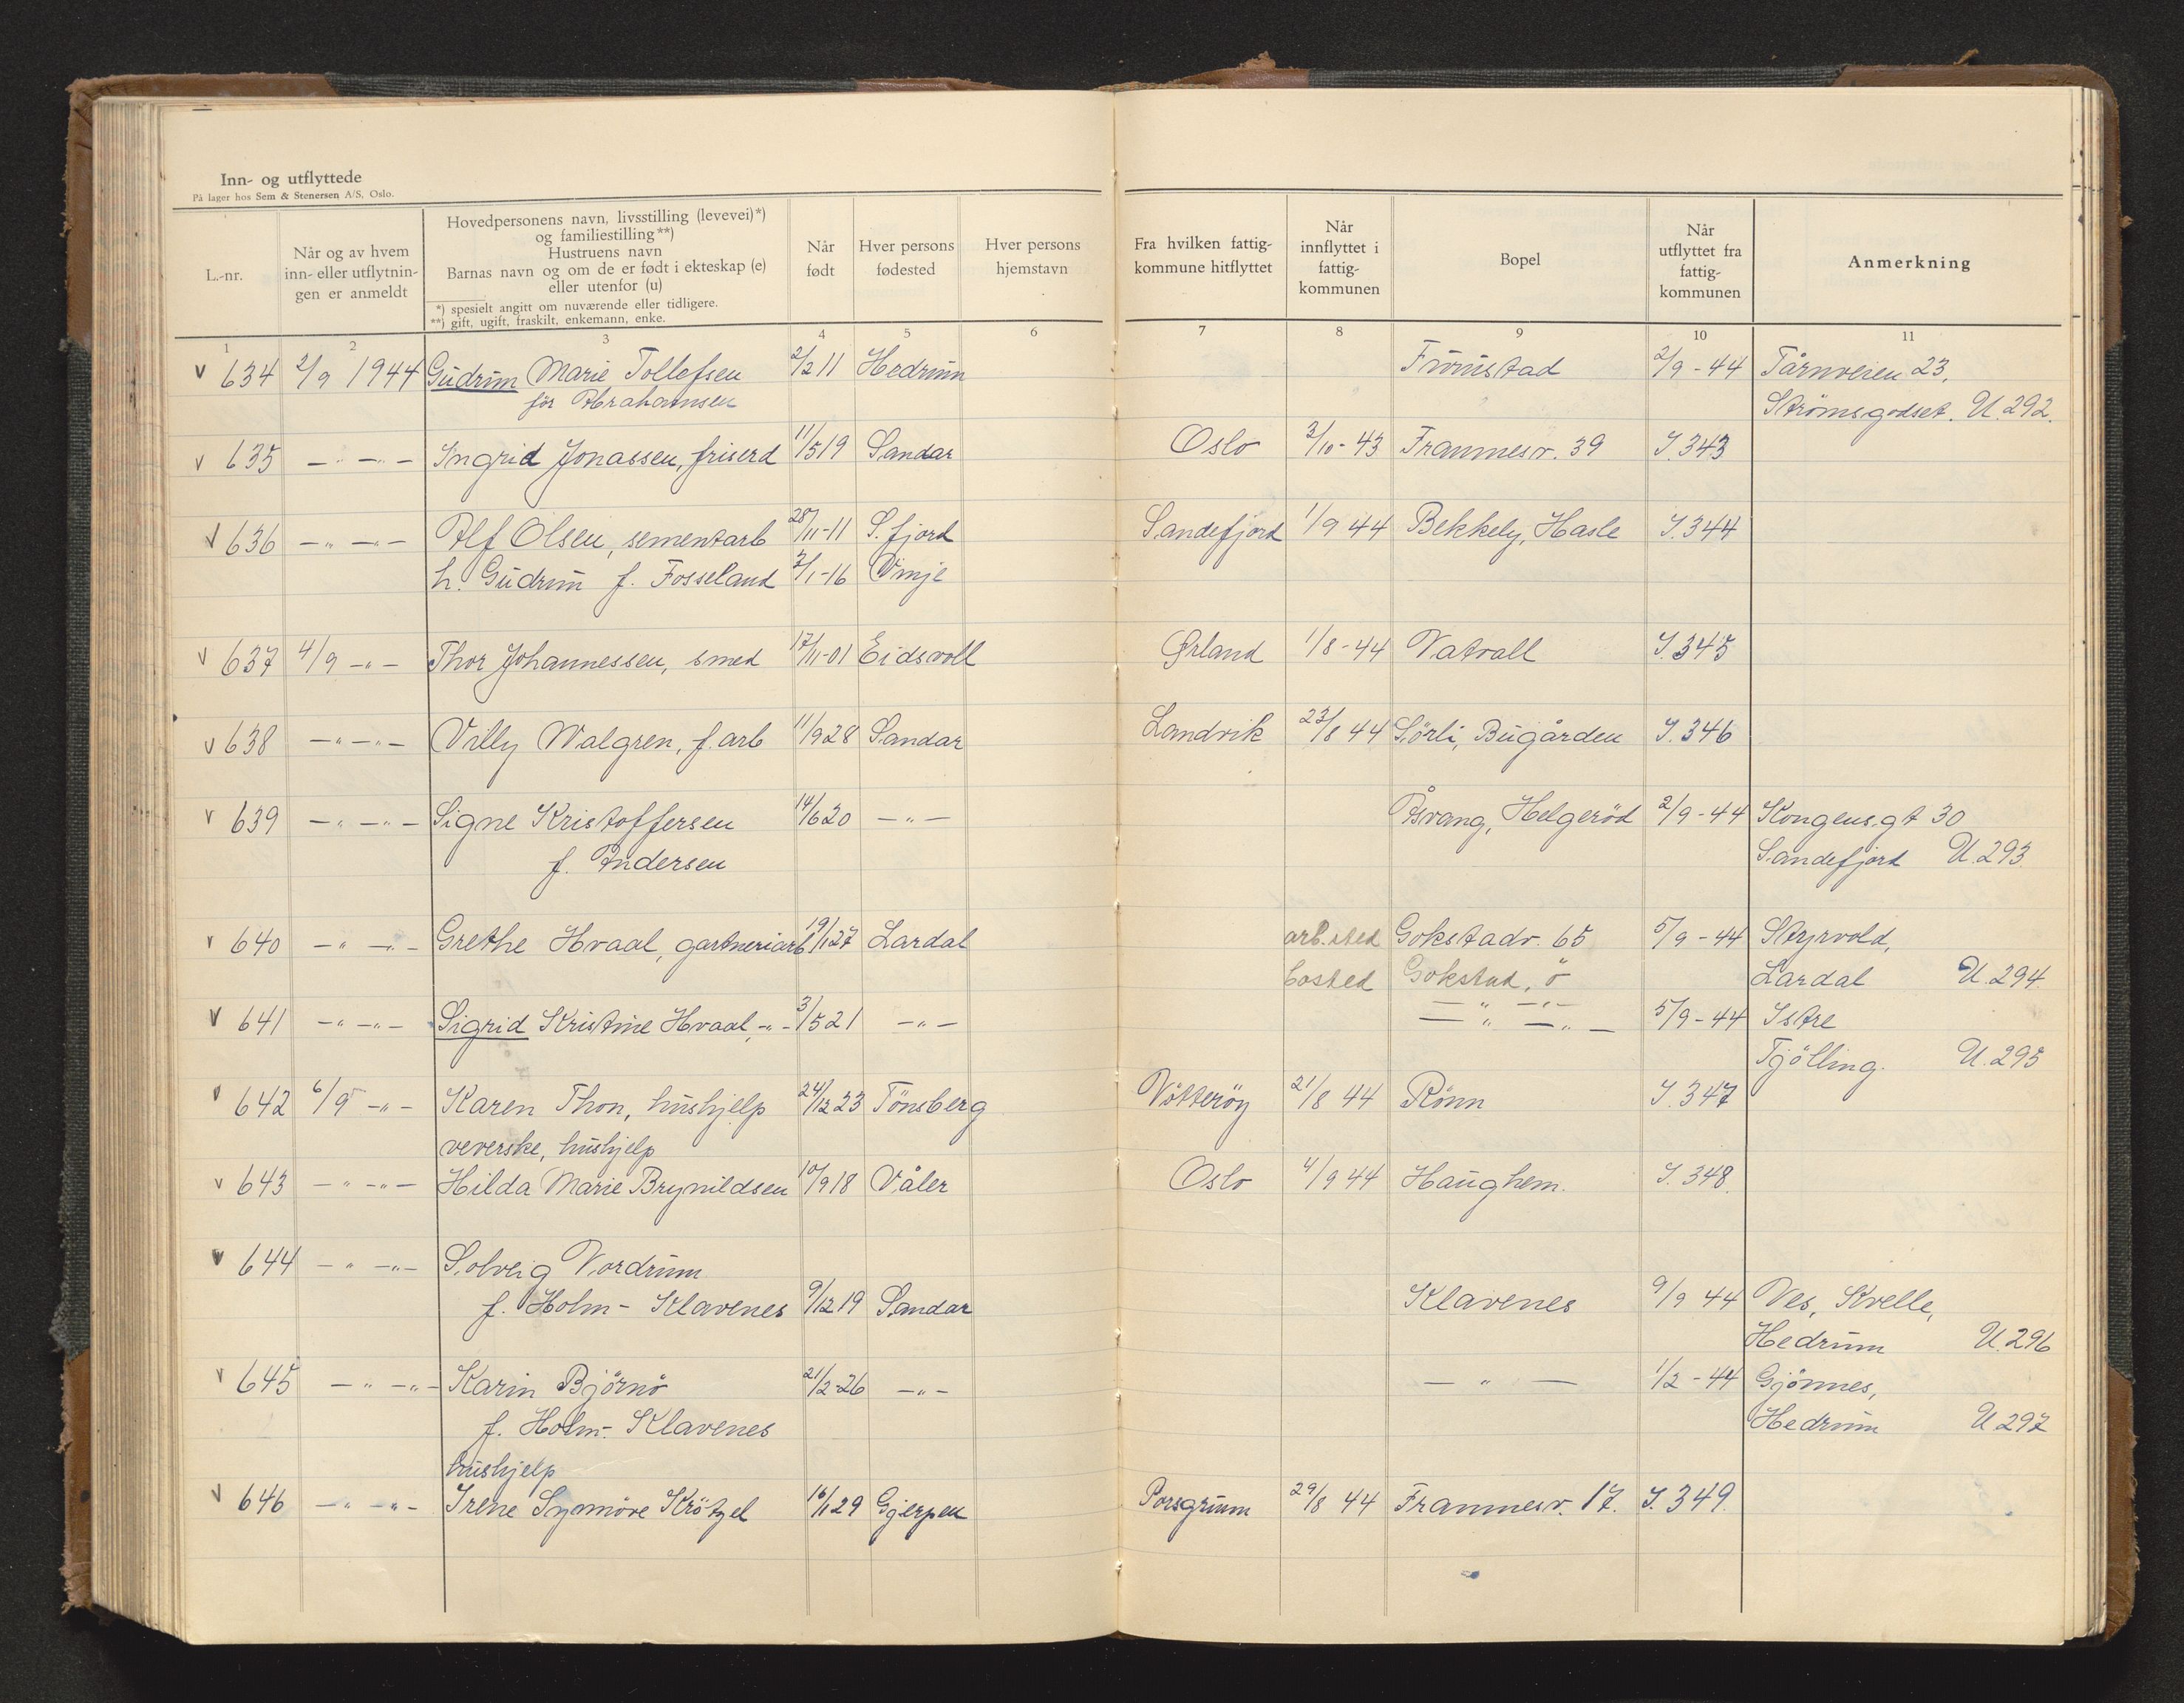 Inn- og utflyttede
På lager hos Sem & Stenersen A/S, Oslo.
L.-nr.
Når og av hvem inn- eller utflytnin- gen er anmeldt
Hovedpersonens navn, livsstilling (levevei)*)
og familiestilling**)
Hustruens navn
Barnas navn og om de er født i ekteskap (e)
eller utenfor (u)
*) spesielt angitt om nuværende eller tidligere.
**) gift, ugift, fraskilt, enkemann, enke.
Når født
Hver persons fødested
Hver persons hjemstavn
Fra hvilken fattig- kommune hitflyttet
Når innflyttet i fattig- kommunen
Bopel
Når utflyttet fra fattig- kommunen
Anmerkning
1 2 3 4 5 6 7 8 9 10 11
v 634 2/9 1944 Gudrun Marie Tollefsen 2/2 11 Hedrum Framnæs 2/9-44 Tårnveien 23,
før Abrahamsen Strømsgodset. U.292.
v 635 -"- -"- Ingrid Jonassen, friserd 11/5 19 Sandar Oslo 2/10-43 Framnesv. 39 I.343
v 636 -"- -"- Alf Olsen, sementarb 28/11-11 S.fjord Sandefjord 1/9 44 Bekkely, Hasle I.344
h. Gudrun f. Fosseland 2/1-16 Vinje
v 637 4/9 -"- Thor Johannessen, smed 17/11-01 Eidsvoll Ørland 1/8-44 Natvall I.345
v 638 -"- -"- Villy Walgren, f.arb 11/9 28 Sandar Landvik 23/8 44 Sörli, Bugården I.346
v 639 -"- -"- Signe Kristoffersen 14/6 20 -"- Åsvang, Helgeröd 2/9-44 Kongens.gt 30
f. Andersen Sandefjord U.293
v 640 -"- -"- Grethe Hvaal, gartneriarb 19/1 27 Lardal arb.sted Gokstadv. 65 5/9-44 Styrvold,
bosted Gokstad, ö Lardal U.294
v 641 -"- -"- Sigrid Kristine Hvaal, -"- 3/5 21 -"- -"- -"- 5/9-44 Istre
-"- -"- Tjölling. U.295
v 642 6/9 -"- Karen Thon, hushjelp 24/12 23 Tönsberg Nötteröy 21/8 44 Rönn I.347
veverske, hushjelp
v 643 -"- -"- Hilda Marie Brynildsen 10/9 18 Våler Oslo 4/9 44 Haughem. I.348.
v 644 -"- -"- Solveig Nordrum
f. Holm-Klavenes 9/12 19 Sandar Klavenes 9/9 44 Nes, Kvelle,
Hedrum U.296
v 645 -"- -"- Karin Björnö 21/2-26 -"- -"- 1/2-44 Gjönnes,
f. Holm-Klavenes Hedrum U.297
hushjelp
v 646 -"- -"- Irene Synnöve Krötzel 16/1 29 Gjerpen Porsgrunn 29/8 44 Framnesv. 17. I.349.